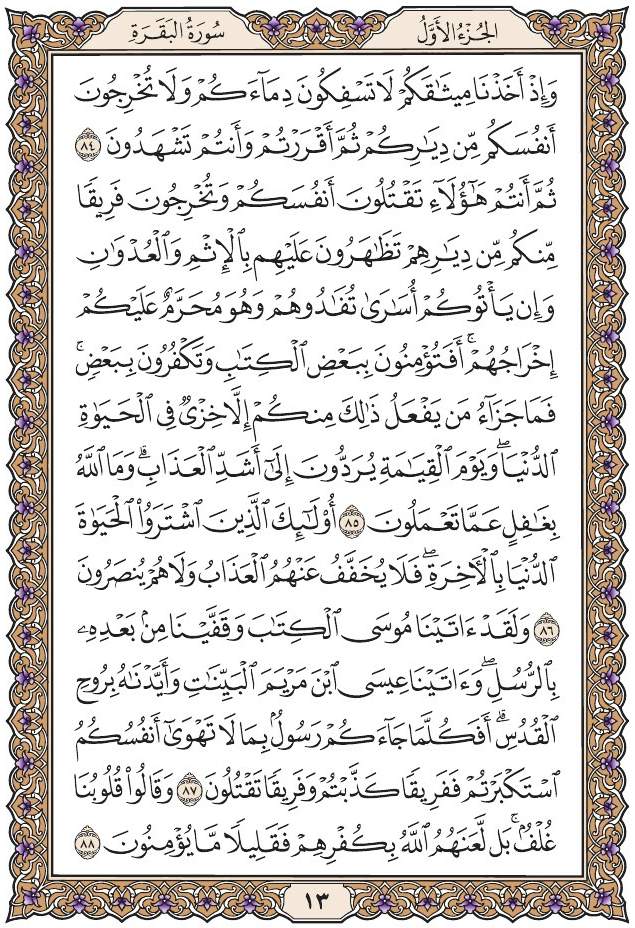 الجُزْءُ الأَوَّلُ سُورَةُ البَقَرَةِ
وَإِذْ أَخَذْنَا مِيثَٰقَكُمْ لَا تَسْفِكُونَ دِمَآءَكُمْ وَلَا تُخْرِجُونَ
أَنفُسَكُم مِّن دِيَٰرِكُمْ ثُمَّ أَقْرَرْتُمْ وَأَنتُمْ تَشْهَدُونَ ٨٤
ثُمَّ أَنتُمْ هَٰٓؤُلَآءِ تَقْتُلُونَ أَنفُسَكُمْ وَتُخْرِجُونَ فَرِيقًا
مِّنكُم مِّن دِيَٰرِهِمْ تَظَٰهَرُونَ عَلَيْهِم بِٱلْإِثْمِ وَٱلْعُدْوَٰنِ
وَإِن يَأْتُوكُمْ أُسَٰرَىٰ تُفَٰدُوهُمْ وَهُوَ مُحَرَّمٌ عَلَيْكُمْ
إِخْرَاجُهُمْۚ أَفَتُؤْمِنُونَ بِبَعْضِ ٱلْكِتَٰبِ وَتَكْفُرُونَ بِبَعْضٍۚ
فَمَا جَزَآءُ مَن يَفْعَلُ ذَٰلِكَ مِنكُمْ إِلَّا خِزْىٌ فِى ٱلْحَيَوٰةِ
ٱلدُّنْيَاۖ وَيَوْمَ ٱلْقِيَٰمَةِ يُرَدُّونَ إِلَىٰٓ أَشَدِّ ٱلْعَذَابِۗ وَمَا ٱللَّهُ
بِغَٰفِلٍ عَمَّا تَعْمَلُونَ ٨٥ أُو۟لَٰٓئِكَ ٱلَّذِينَ ٱشْتَرَوُا۟ ٱلْحَيَوٰةَ
ٱلدُّنْيَا بِٱلْءَاخِرَةِۖ فَلَا يُخَفَّفُ عَنْهُمُ ٱلْعَذَابُ وَلَا هُمْ يُنصَرُونَ
٨٦ وَلَقَدْ ءَاتَيْنَا مُوسَى ٱلْكِتَٰبَ وَقَفَّيْنَا مِنۢ بَعْدِهِۦ
بِٱلرُّسُلِۖ وَءَاتَيْنَا عِيسَى ٱبْنَ مَرْيَمَ ٱلْبَيِّنَٰتِ وَأَيَّدْنَٰهُ بِرُوحِ
ٱلْقُدُسِۗ أَفَكُلَّمَا جَآءَكُمْ رَسُولٌۢ بِمَا لَا تَهْوَىٰٓ أَنفُسُكُمُ
ٱسْتَكْبَرْتُمْ فَفَرِيقًا كَذَّبْتُمْ وَفَرِيقًا تَقْتُلُونَ ٨٧ وَقَالُوا۟ قُلُوبُنَا
غُلْفٌۢۚ بَل لَّعَنَهُمُ ٱللَّهُ بِكُفْرِهِمْ فَقَلِيلًا مَّا يُؤْمِنُونَ ٨٨
١٣